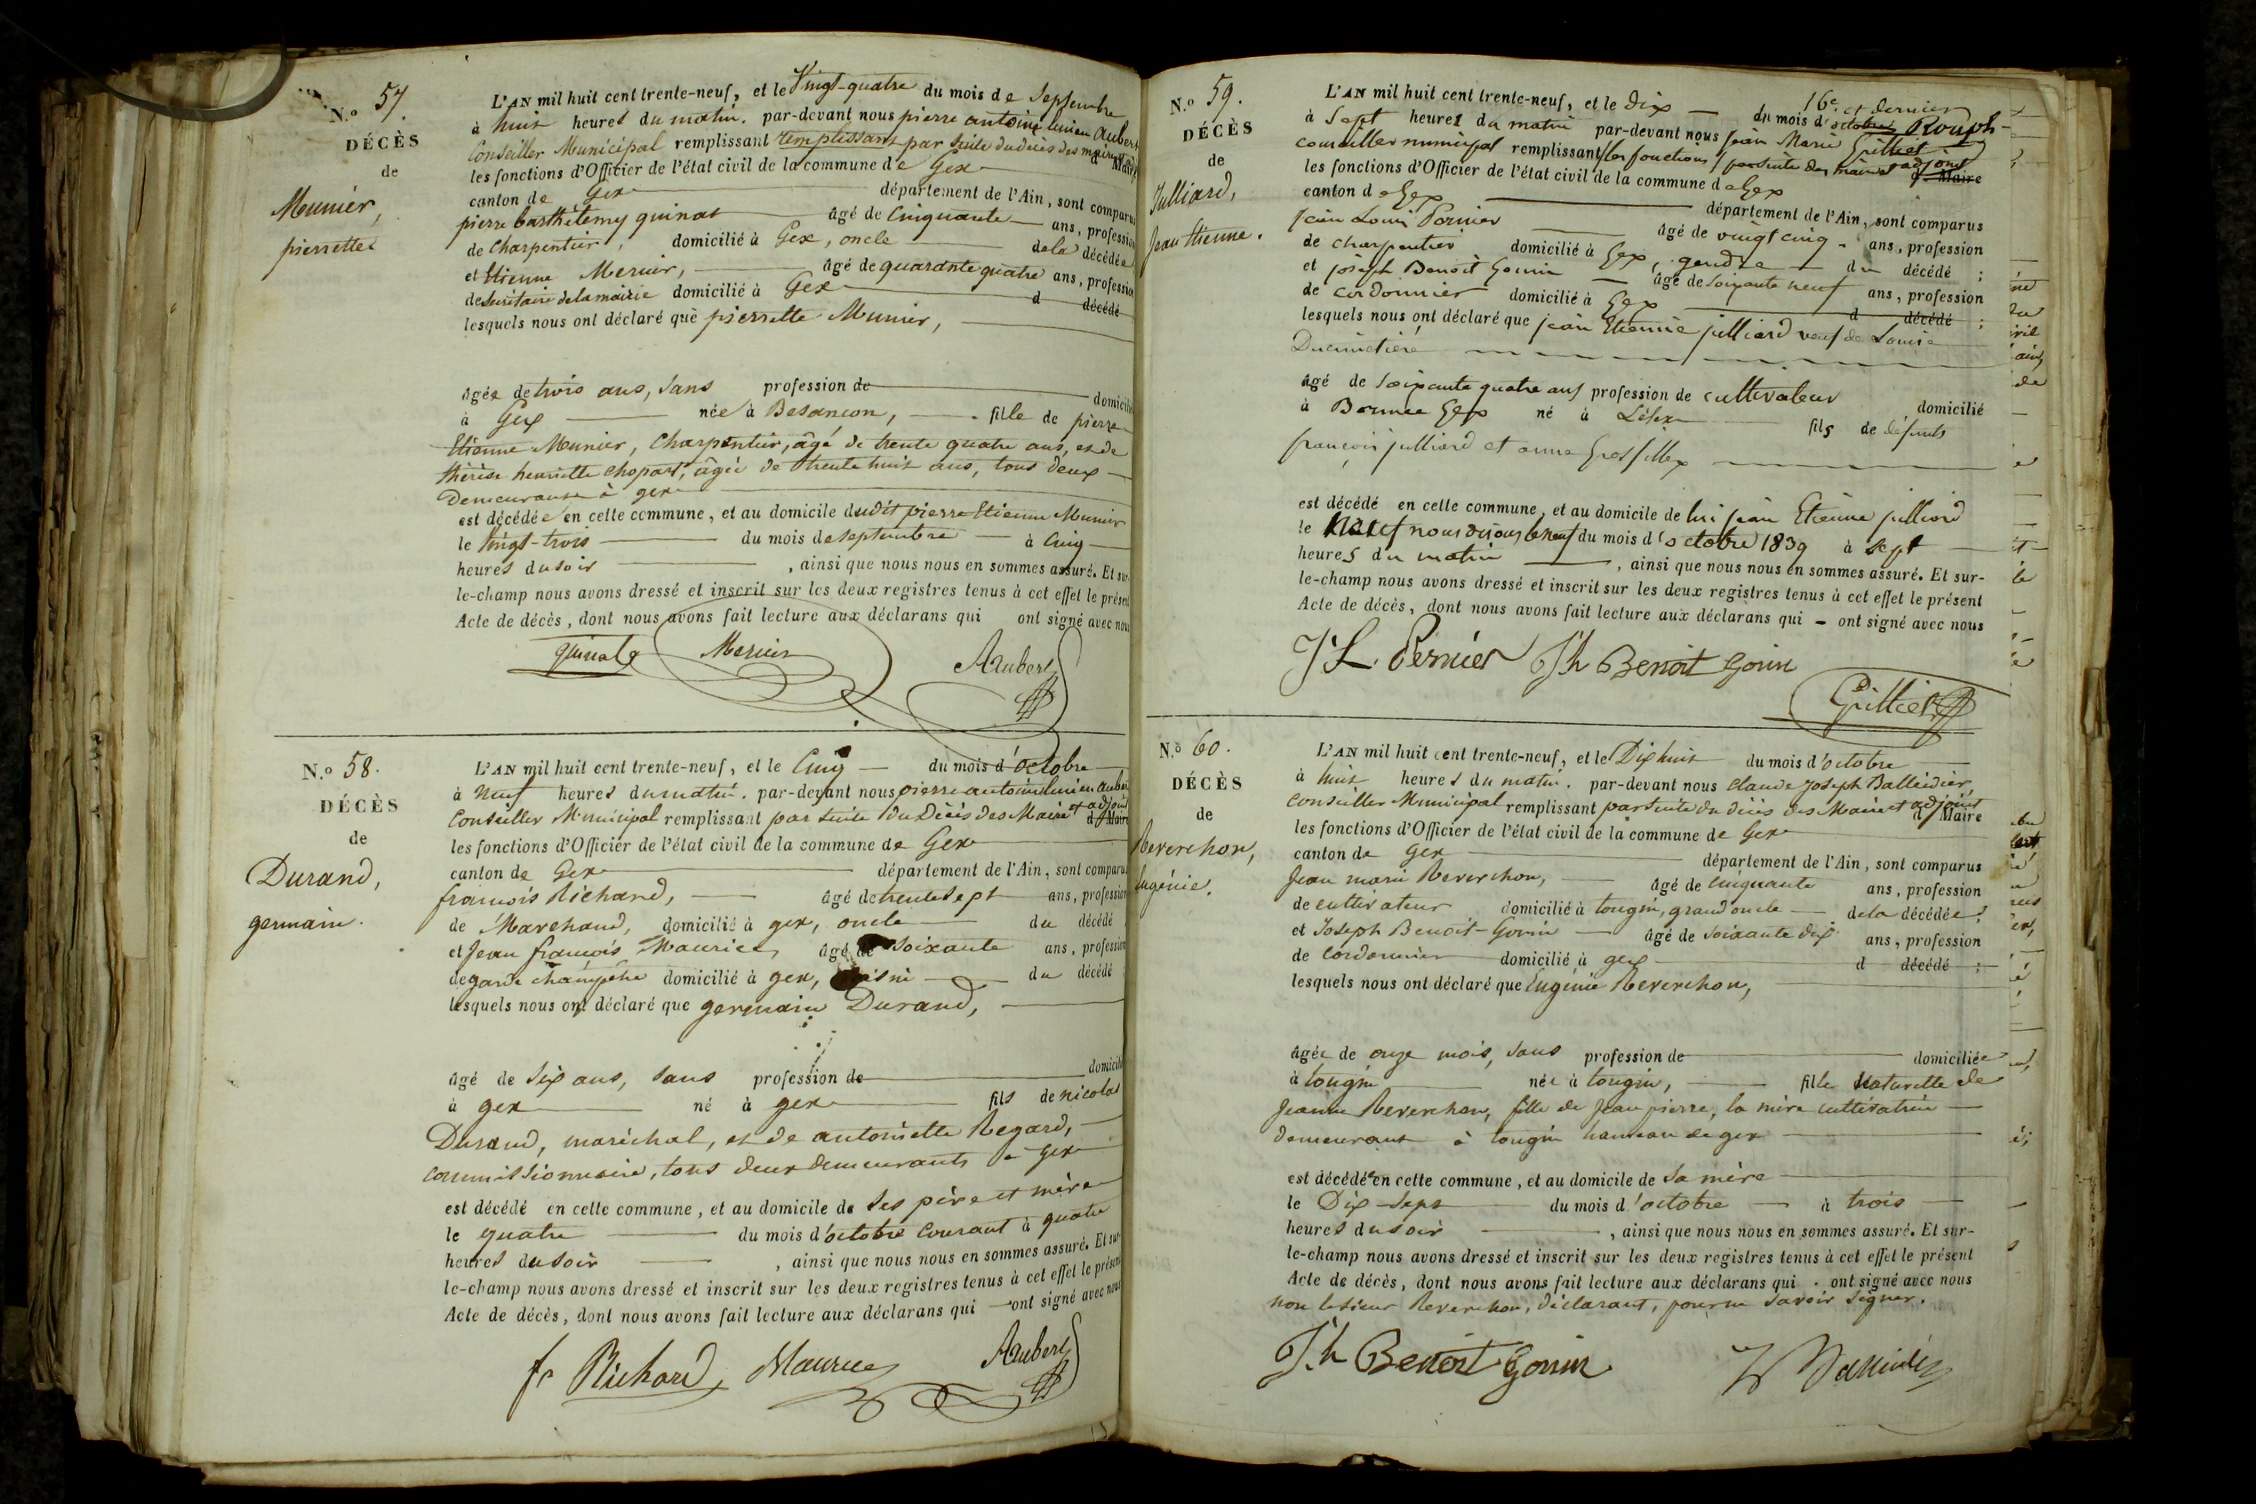 N.º 57.
DÉCÈS
de
Meunier,
pierrette
L'AN mil huit cent trente-neuf, et le Vingt-quatre du mois de Septembre
à huit heures du matin. par-devant nous pierre antoine lucien Aubert
Conseiller Municipal remplissant remplissant par suite du décès des maire et
les fonctions d'Officier de l'état civil de la commune de Gex
canton de Gex département de l'Ain, sont comparus
pierre barthélemy quinat âgé de Cinquante ans, profession
de Charpentier, domicilié à Gex, oncle de la décédée
et Etienne Mercier, âgé de quarante quatre ans, profession
de secrétaire de la mairie domicilié à Gex d décédé
lesquels nous ont déclaré que pierrette Munier,
âgée de trois ans, sans profession de domicilié
à Gex née à Besançon, fille de pierre
Etienne Munier, Charpentier, âgé de trente quatre ans, et de
thérèse henriette chopart, âgée de trente huit ans, tous deux
Demeurants à gex
est décédée en cette commune, et au domicile dudit pierre Etienne Munier
le Vingt-trois du mois de septembre à Cinq
heures du soir , ainsi que nous nous en sommes assuré. Et sur-
le-champ nous avons dressé et inscrit sur les deux registres tenus à cet effet le présent
Acte de décès, dont nous avons fait lecture aux déclarans qui ont signé avec nous
quinat Mercier
AAubert
N.º 58.
DÉCÈS
de
Durand,
germain.
L'AN mil huit cent trente-neuf, et le Cinq du mois d'octobre
à Neuf heures du matin. par-devant nous pierre antoine lucien Aubert
Conseiller Municipal remplissant par suite du Décès des Maire et adjoint d Maire
les fonctions d'Officier de l'état civil de la commune de Gex
canton de Gex département de l'Ain, sont comparus
françois Richard, âgé de trente sept ans, profession
de Marchand, domicilié à gex, oncle du décédé
et Jean françois Maurice, âgé de soixante ans, profession
de garde champêtre domicilié à gex, voisin du décédé
lesquels nous ont déclaré que germain Durand,
âgé de six ans, sans profession de domicilié
à gex né à gex fils de nicolas
Durand, maréchal, et de antoinette Regard,
commissionnaire, tous deux demeurants à Gex
est décédé en cette commune, et au domicile de ses père et mère
le quatre du mois d'octobre courant à quatre
heures du soir , ainsi que nous nous en sommes assuré. Et sur-
le-champ nous avons dressé et inscrit sur les deux registres tenus à cet effet le présent
Acte de décès, dont nous avons fait lecture aux déclarans qui ont signé avec nous
fs Richard, Maurice
AAubert
N.º 59.
DÉCÈS
de
Julliard,
Jean Etienne.
L'AN mil huit cent trente-neuf, et le dix du mois d'octobre
à Sept heures du matin par-devant nous Jean Marie Grilliet
conseiller municipal remplissant les fonctions par suite des maire et adjoint d Maire
les fonctions d'Officier de l'état civil de la commune de Gex
canton de Gex département de l'Ain, sont comparus
Jean Louis Pernier âgé de vingt cinq ans, profession
de charpentier domicilié à Gex, gendre du décédé ;
et joseph Benoit Gonin âgé de soixante neuf ans, profession
de cordonnier domicilié à Gex d décédé ;
lesquels nous ont déclaré que jean Etienne julliard veuf de Louise
Ducimetière
âgé de soixante quatre ans profession de cultivateur domicilié
à Gex né à Lélex fils de défunts
françois julliard et anne Grosfillex
est décédé en cette commune, et au domicile de lui jean Etienne julliard
le Neuf nous disons le neuf du mois d'octobre 1839 à sept
heures du matin , ainsi que nous nous en sommes assuré. Et sur-
le-champ nous avons dressé et inscrit sur les deux registres tenus à cet effet le présent
Acte de décès, dont nous avons fait lecture aux déclarans qui ont signé avec nous
J. L. Pernier Jh Benoit Gonin
Grilliet
N.º 60.
DÉCÈS
de
Reverchon,
Eugénie.
L'AN mil huit cent trente-neuf, et le Dix huit du mois d'octobre
à huit heures du matin. par-devant nous Claude Joseph Balleidier,
Conseiller Municipal remplissant par suite du décès des Maire et adjoint d Maire
les fonctions d'Officier de l'état civil de la commune de Gex
canton de Gex département de l'Ain, sont comparus
Jean marie Reverchon, âgé de Cinquante ans, profession
de cultivateur domicilié à tougin, grand oncle de la décédée ;
et Joseph Benoit-Gonin âgé de soixante dix ans, profession
de cordonnier domicilié à gex d décédé ;
lesquels nous ont déclaré que Eugénie Reverchon,
âgée de onze mois, sans profession de domiciliée
à tougin née à tougin, fille Naturelle de
Jeanne Reverchon, fille de Jean pierre, la mère cultivatrice
demeurant à tougin hameau de gex
est décédée en cette commune, et au domicile de Sa mère
le Dix-Sept du mois d'octobre à trois
heures du soir , ainsi que nous nous en sommes assuré. Et sur-
le-champ nous avons dressé et inscrit sur les deux registres tenus à cet effet le présent
Acte de décès, dont nous avons fait lecture aux déclarans qui ont signé avec nous
non le sieur Reverchon, déclarant, pour ne savoir signer.
Jh Benoit Gonin